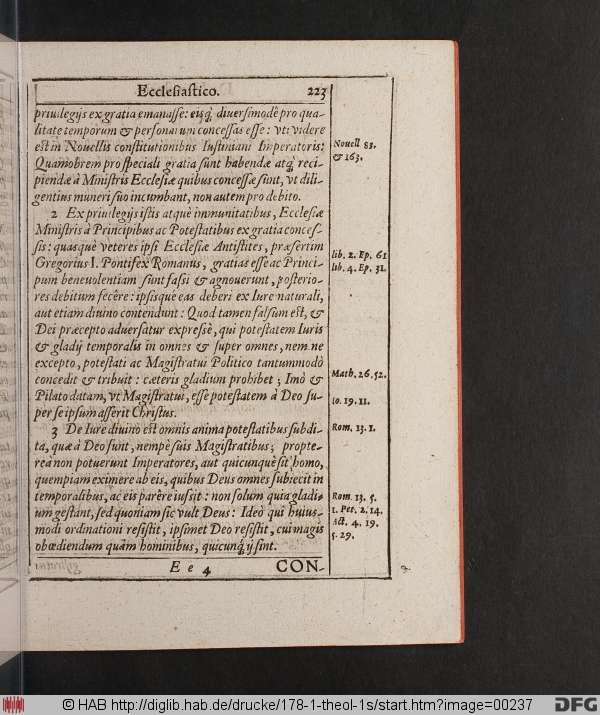 Ecclesiastico. 223
priuilegijs ex gratia emanasse: eisq́ diuersimodè pro qua-
litate temporum & personarum concessas esse: vti videre
est in Nouellis constitutionibus Iustiniani Imperatoris:
Quamobrem pro speciali gratia sunt habendæ atq́ reci-
piendæ à Ministris Ecclesiæ quibus concessæ sint, vt dili-
gentius muneri suo incumbant, non autem pro debito.
Novell 83.
& 163.
2 Ex priuilegijs istis atquè immunitatibus, Ecclesiæ
Ministris à Principibus ac Potestatibus ex gratia conces-
sis: quasquè veteres ipsi Ecclesiæ Antistites, præsertim
Gregorius I. Pontifex Romanus, gratias esse ac Princi-
pum beneuolentiam sunt fassi & agnouerunt, posterio-
res debitum fecêre: ipsisquè eas deberi ex Iure naturali,
aut etiam diuino contendunt: Quod tamen falsum est, &
Dei præcepto aduersatur expressè, qui potestatem Iuris
& gladij temporalis in omnes & super omnes, nemine
excepto, potestati ac Magistratui Politico tantummodò
concedit & tribuit: cæteris gladium prohibet; Imò &
Pilato datam, vt Magistratui, esse potestatem à Deo su-
per se ipsum asserit Christus.
lib. 2. Ep. 61
lib. 4. Ep. 31.
Math. 26. 52.
Io. 19. 11.
3 De Iure diuino est omnis anima potestatibus subdi-
ta, quæ à Deo sunt, nempè suis Magistratibus; propte-
rea non potuerunt Imperatores, aut quicunquè sit homo,
quempiam eximere ab eis, quibus Deus omnes subiecit in
temporalibus, ac eis parêre iussit: non solum quia gladi-
um gestant, sed quoniam sic vult Deus: Ideò qui huius-
modi ordinationi resistit, ipsimet Deo resistit, cui magis
obœdiendum quàm hominibus, quicunq́ ij sint.
Rom. 13. 1.
Rom. 13. 5.
1. Pet. 2. 14.
Act. 4. 19.
5. 29.
E e 4 CON-
© HAB http://diglib.hab.de/drucke/178-1-theol-1s/start.htm?image=00237
DFG